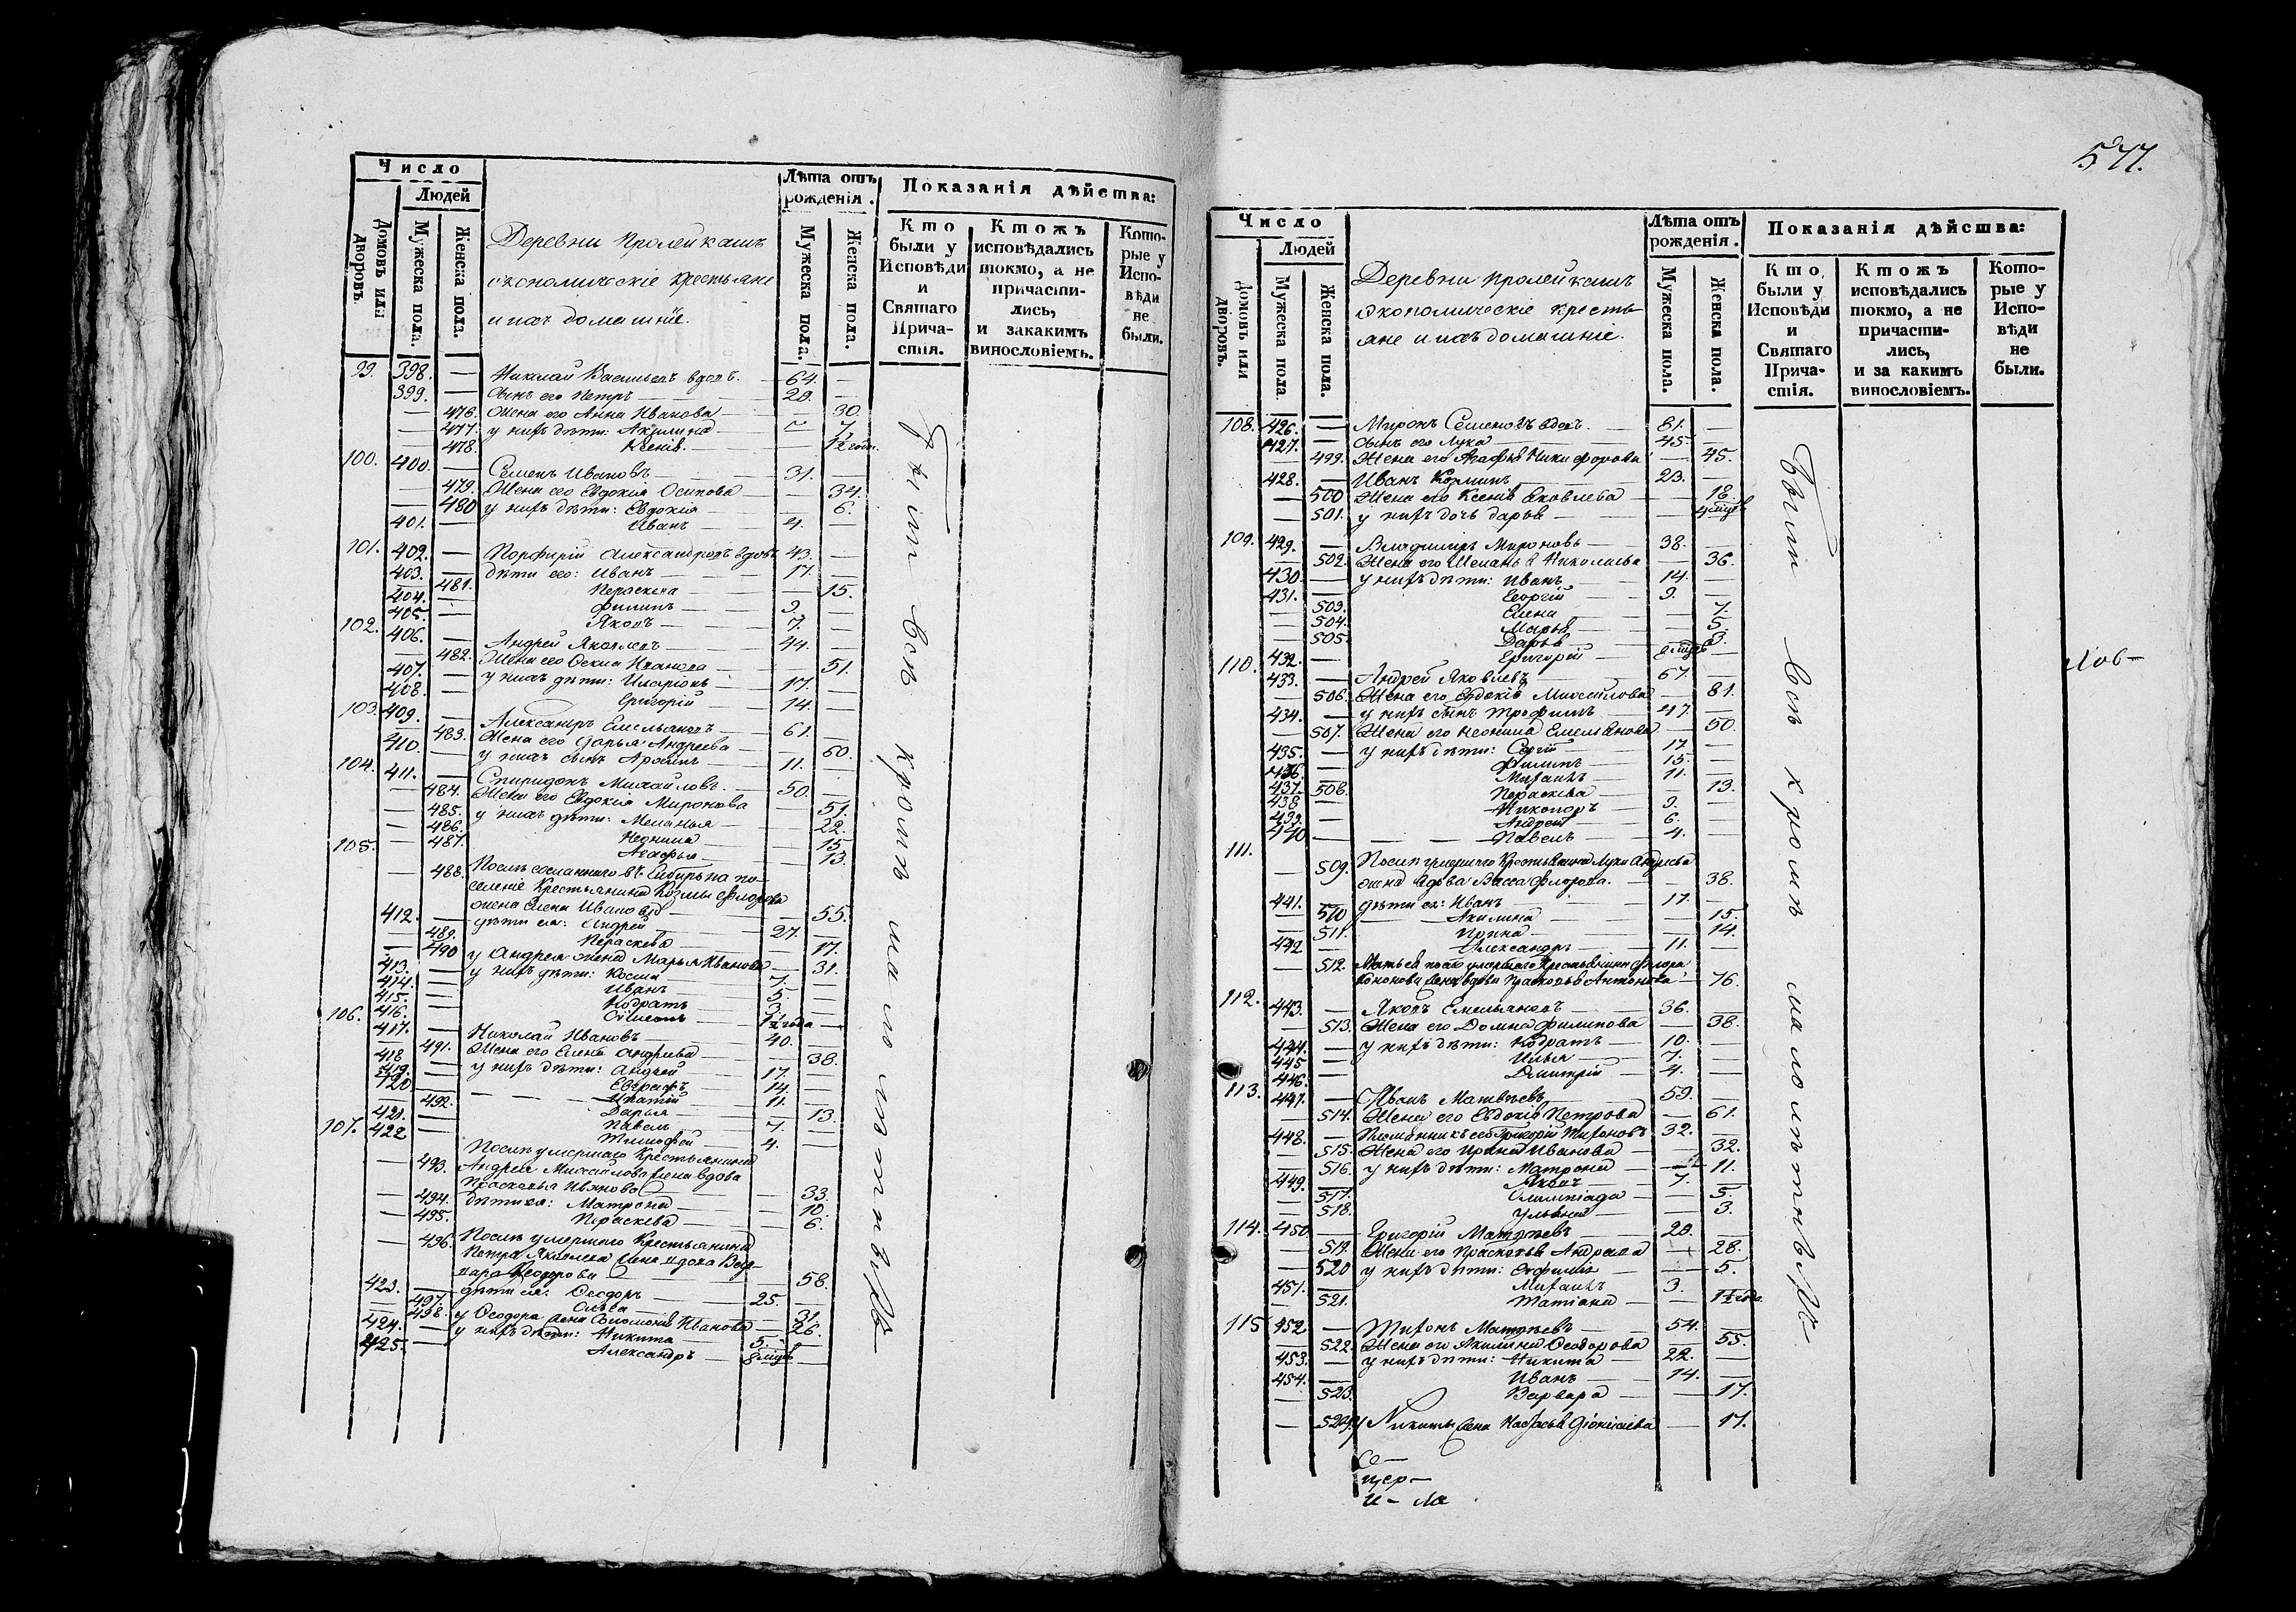 Число
Людей
Домовъ или дворовъ.
Мужеска пола.
Женска пола.
Деревни Пролейкашъ
экономическіе крестьяне
и ихъ домашніе.
Лѣта отъ рожденія.
Мужеска пола.
Женска пола.
Показанія дѣйства:
Кто были у Исповѣди и Святаго Причастія.
Ктожъ исповѣдались токмо, а не причастились, и закакимъ винословіемъ.
Которые у Исповѣди не были.
99. 398. — Николай Васильевъ вдовъ. 64. —
399. — Сынъ его Петръ 29. —
— 476. Жена его Анна Иванова — 30.
— 477. у нихъ дѣти: Акилина — 7.
— 478. Ксенія. — 1½ года.
100. 400. — Семенъ Ивановъ 31. —
— 479. Жена его Евдокія Осипова — 34.
— 480 у нихъ дѣти: Евдокия — 6.
401. — Иванъ 4. —
101. 402. — Порфирій Александровъ вдовъ 43. —
403. — дѣти его: Иванъ 17. —
— 481. Пераскева — 15.
404. — Филипъ 9. —
405. — Яковъ 7. —
102. 406. — Андрей Яковлевъ 44. —
— 482. Жена его Иванова — 51.
407. — у нихъ дѣти: Иларіонъ 17. —
408. — Григорій 14. —
103. 409. — Александръ Емельяновъ 61. —
— 483. Жена его Дарья Андреева — 60.
410. — у нихъ сынъ 11. —
104. 411. — Спиридонъ Михайловъ. 50. —
— 484. Жена его Евдокия Миронова — 51.
— 485. у нихъ дѣти: Меланья — 22.
— 486. Неонила — 15
— 487. Агафья — 13.
105. — 488. Послѣ сосланнаго въ Сибирь на по-
селеніе Крестьянина Козмы Флорова
жена Елена Иванова — 55.
412. — дѣти ея: Андрей 27. —
— 489. Пераскева — 17.
— 490 у Андрея жена Марья Иванова — 31.
413. — у нихъ дѣти: Косма 7. —
414. — Иванъ 5. —
415. — Кодратъ 3. —
416. — 1½ года —
106. 417. — Николай Ивановъ 40. —
— 491. Жена его Елена Андреева — 38.
418 — у нихъ дѣти: Андрей 17. —
419. — Евграфъ 14. —
420 — Игнатій 11. —
— 492. Дарья — 13.
421. — Павелъ 7. —
422 — Тимофей 4. —
107. Послѣ умершаго Крестьянина
— 493. Андрея Михайлова жена вдова
Прасковья Иванова — 33.
— 494. дѣти ея: Матрона — 10.
— 495. Пераскева — 6.
— 496. Послѣ умершаго Крестьянина
Петра Яковлева жена вдова Вар-
вара Ѳеодорова — 58.
423. — дѣти ея: Ѳеодоръ 25. —
— 497. — 31.
— 498. у Ѳеодора жена Соломонія Иванова — 26.
424. — у нихъ дѣти: Никита 5. —
425. — Александръ 8 мцъ —
Были всѣ кромѣ малолѣтнихъ
577.
Число
Людей
Домовъ или дворовъ.
Мужеска пола
Женска пола.
Деревни Пролейкашъ
экономическіе кресть-
яне и ихъ домашніе.
Лѣта отъ рожденія.
Мужеска пола.
Женска пола.
Показанія дѣйсшва:
Кто были у Исповѣди и Святаго Причастія.
Ктожъ исповѣдались токмо, а не причастились, и за какимъ винословіемъ.
Которые у Исповѣди не были.
108. 426. — Миронъ Семеновъ вдовъ. 81. —
427. — Сынъ его Лука 45. —
— 499. Жена его Агафья Никифорова — 45.
428. — Иванъ 23. —
— 500 Жена его Ксенія Яковлева — 18.
— 501. у нихъ дочь Дарья —
109. 429. — Владимиръ Мироновъ 38. —
— 502. Жена его Меланья Николаева — 36.
430. — у нихъ дѣти: Иванъ 14. —
431. — Георгій 9. —
— 503. Елена — 7.
— 504. Марья — 5.
— 505 Дарья — 3.
432. — Григорій 8 мцъ —
110. 433. — Андрей Яковлевъ 67. —
— 506. Жена его Евдокія Михайлова — 81.
434. — у нихъ сынъ Трофимъ 47. —
— 507. Жена его Неонила Емельянова — 50.
435. — у нихъ дѣти: Сергій 17. —
436. — Филипъ 15. —
437. — Михаилъ 11. —
— 508. Пераскева — 13.
438 — Никоноръ 9. —
439. — Андрей 6. —
440 — Павелъ 4. —
111. — 509. Послѣ умершаго Крестьянина Луки Андреева
жена вдова Васса Флорова. — 38.
441. — дѣти ея: Иванъ 17. —
— 510 Акилина — 15.
— 511. Ирина — 14.
442 — Александръ 11. —
— 512. Мать ея послѣ умершаго Крестьянина Флора
Кононова жена вдова Прасковья Антонова 76.
112. 443. — Яковъ Емельяновъ 36. —
— 513. Жена его Домна Филипова — 38.
444. — у нихъ дѣти: Кодратъ 10. —
445 — Илья 7. —
446. — Дмитрій 4. —
113. 447. — Иванъ Матвѣевъ 59. —
— 514. Жена его Евдокія Петрова — 61.
448. — Племянникъ его Григорій Тихоновъ 32. —
— 515. Жена его Ирина Иванова — 32.
— 516. у нихъ дѣти: Матрона — 11.
449. — Яковъ 7. —
— 517. Олимпіада — 5.
— 518. Ульяна — 3.
114. 450. — Григорій Матвѣевъ 28. —
— 519. Жена его Прасковья Андреева — 28.
— 520 у нихъ дѣти: Евфимія — 5.
451. — Михаилъ 3. —
— 521. Татіана — 1½ года.
115 452 — Тихонъ Матвѣевъ 54. —
— 522. Жена его Акилина Ѳеодорова — 55.
453. — у нихъ дѣти: Никита 22. —
454. — Иванъ 14. —
— 523. Варвара — 17.
— 524. у Никиты жена Настасья Діонисіева — 17.
Были всѣ кромѣ малолѣтнихъ
Се-
щер-
и- Ла